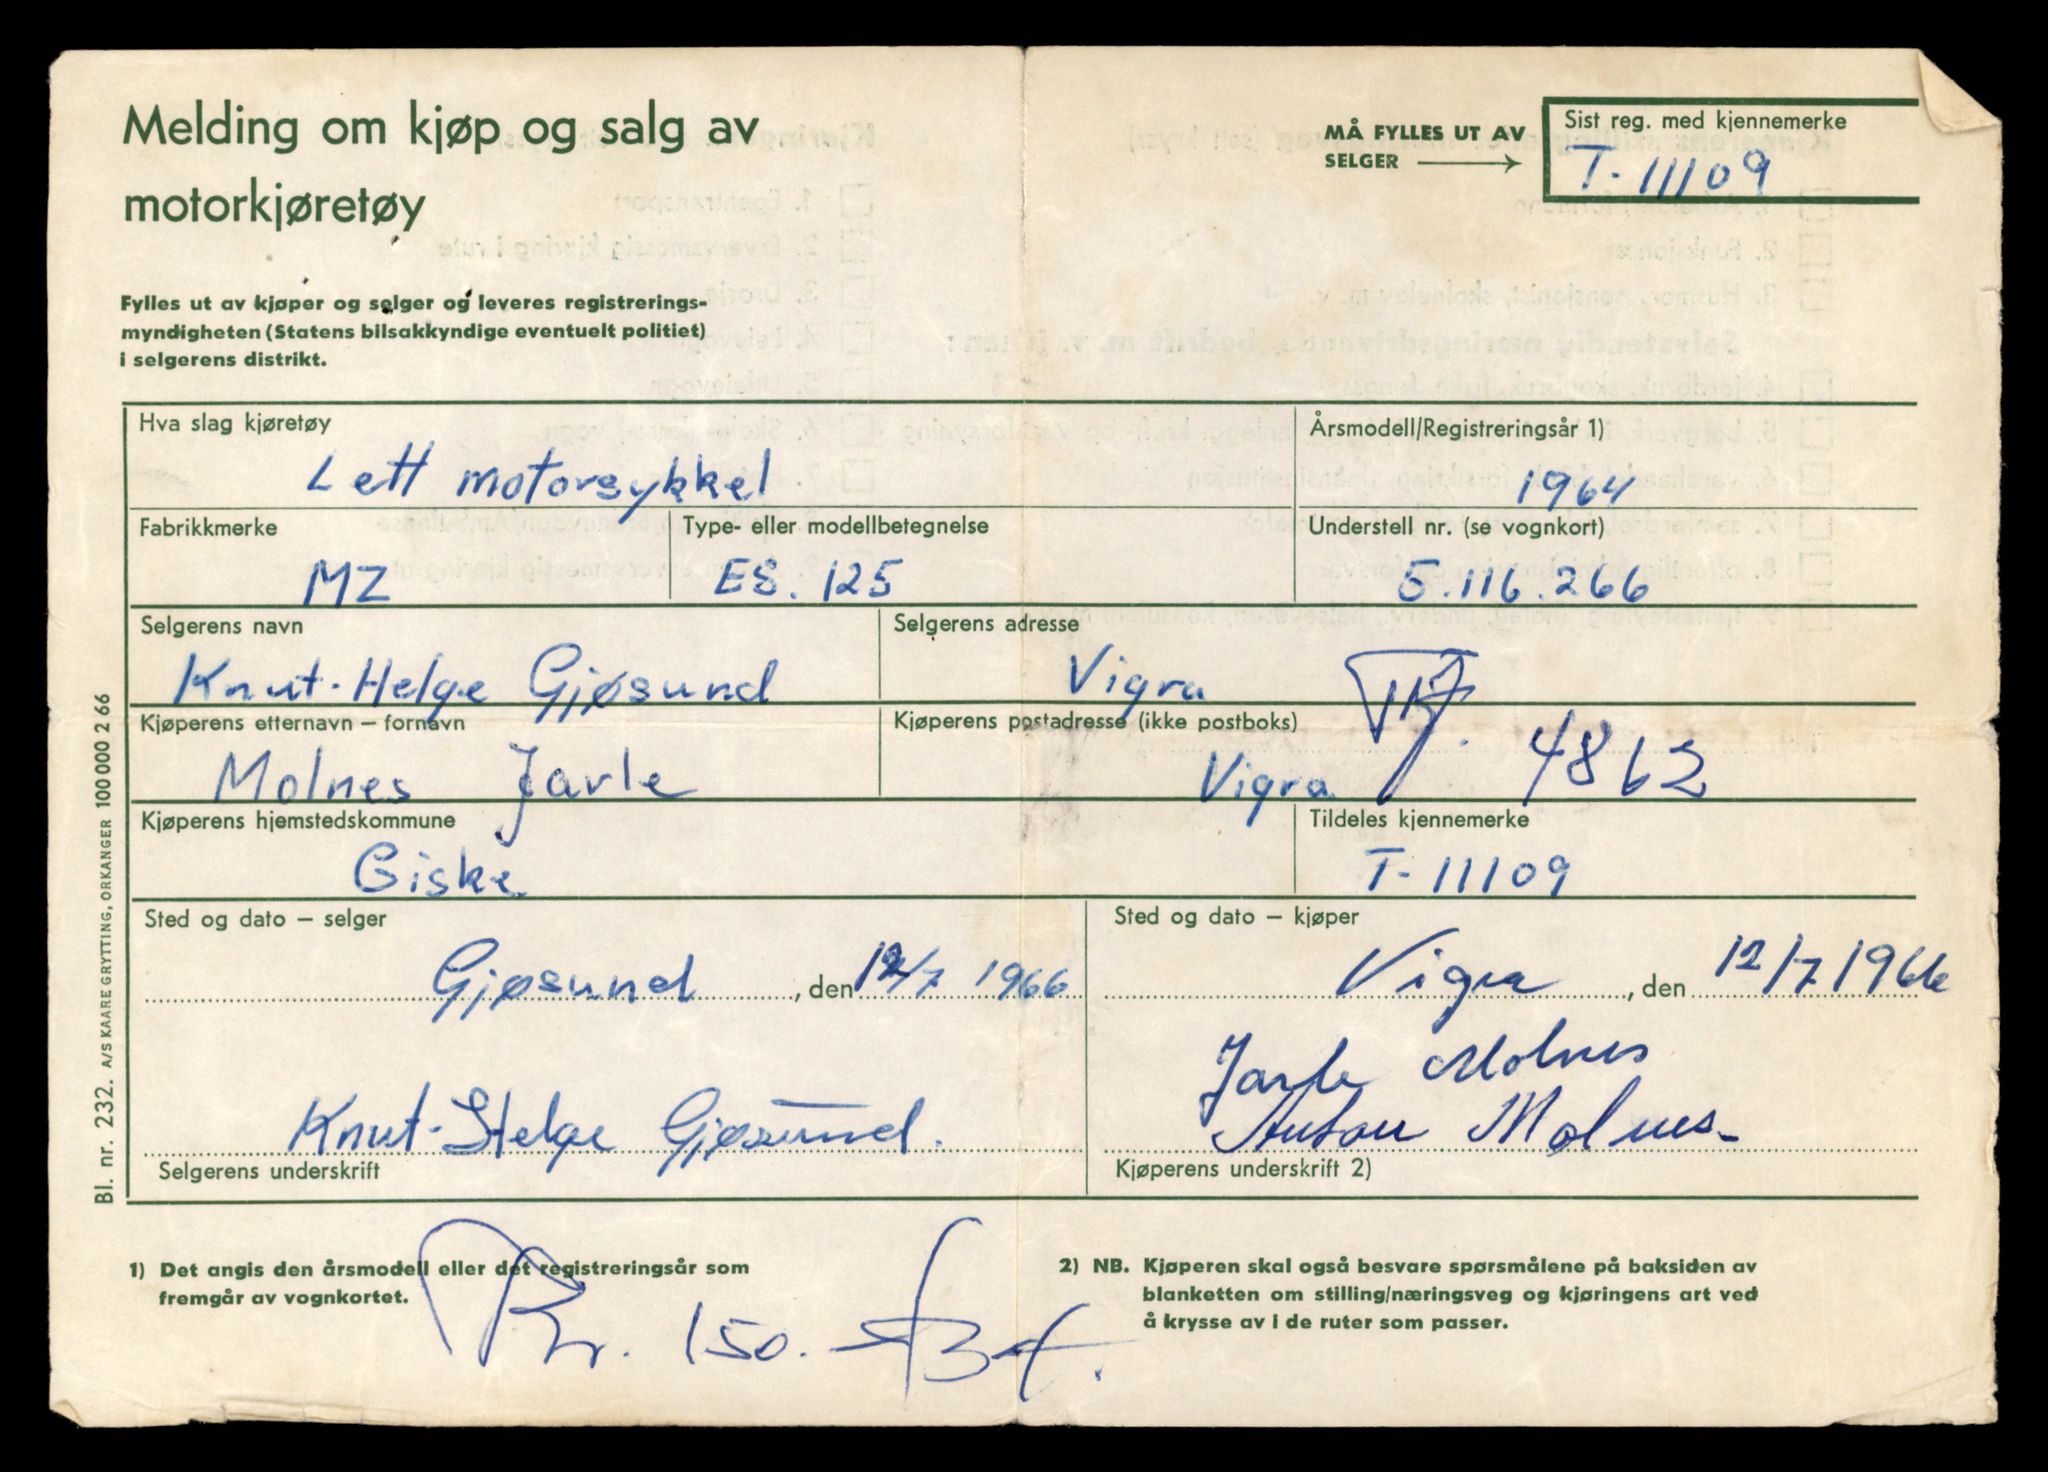 Melding om kjøp og salg av
motorkjøretøy
MÅ FYLLES UT AV
SELGER
Sist reg. med kjennemerke
T-11109
Fylles ut av kjøper og selger og leveres registrerings-
myndigheten (Statens bilsakkyndige eventuelt politiet)
i selgerens distrikt.
Hva slag kjøretøy
Lett motorsykkel
Årsmodell/Registreringsår 1)
1964
Fabrikkmerke
MZ
Type- eller modellbetegnelse
ES. 125
Understell nr. (se vognkort)
5.116.266
Selgerens navn
Knut-Helge Gjøsund
Selgerens adresse
Vigra
Kjøperens etternavn – fornavn
Molnes Jarle
Kjøperens postadresse (ikke postboks)
Vigra
4862
Kjøperens hjemstedskommune
Giske
Tildeles kjennemerke
T-11109
Sted og dato – selger
Gjøsund, den 12/7 1966
Sted og dato – kjøper
Vigra, den 12/7 1966
Knut-Helge Gjøsund.
Selgerens underskrift
Jarle Molnes
Anton Molnes
Kjøperens underskrift 2)
1) Det angis den årsmodell eller det registreringsår som
fremgår av vognkortet.
2) NB. Kjøperen skal også besvare spørsmålene på baksiden av
blanketten om stilling/næringsveg og kjøringens art ved
å krysse av i de ruter som passer.
Kr. 150.
Bl. nr. 232. A/S KAARE GRYTTING, ORKANGER 100 000 2 66